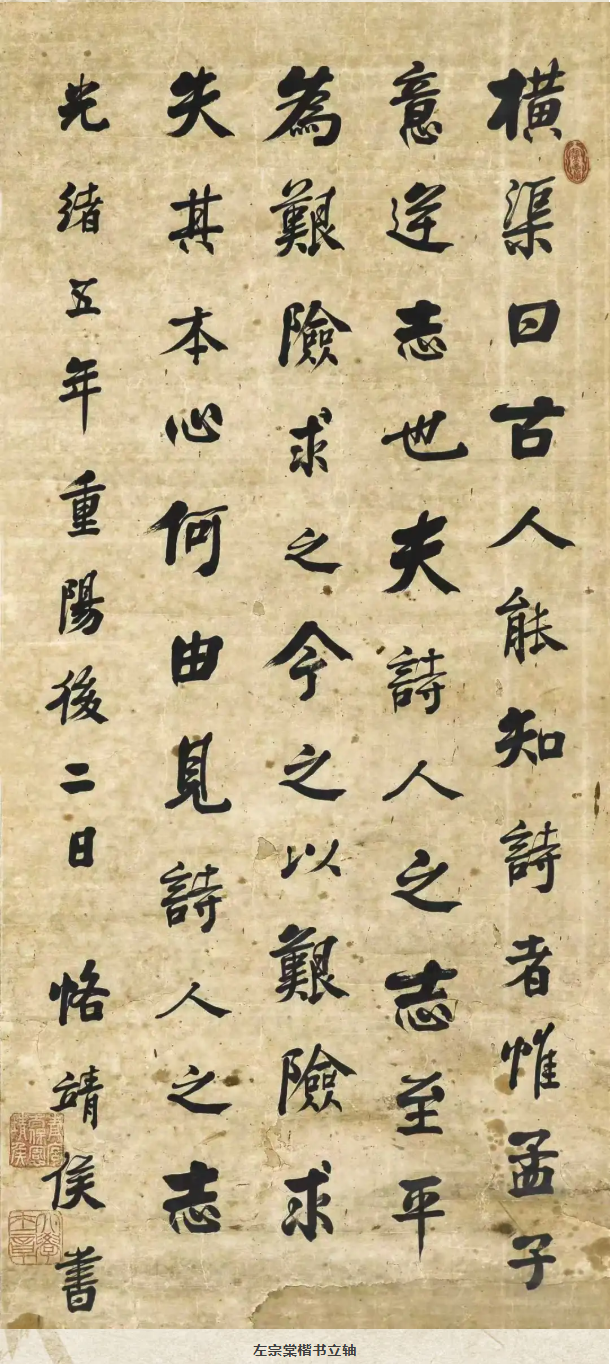 橫渠曰古人能知詩者惟孟子
意逆志也夫詩人之志至平
為艱險求之今之以艱險求
失其本心何由見詩人之志
光緒五年重陽後二日 恪靖侯書
左宗棠楷书立轴